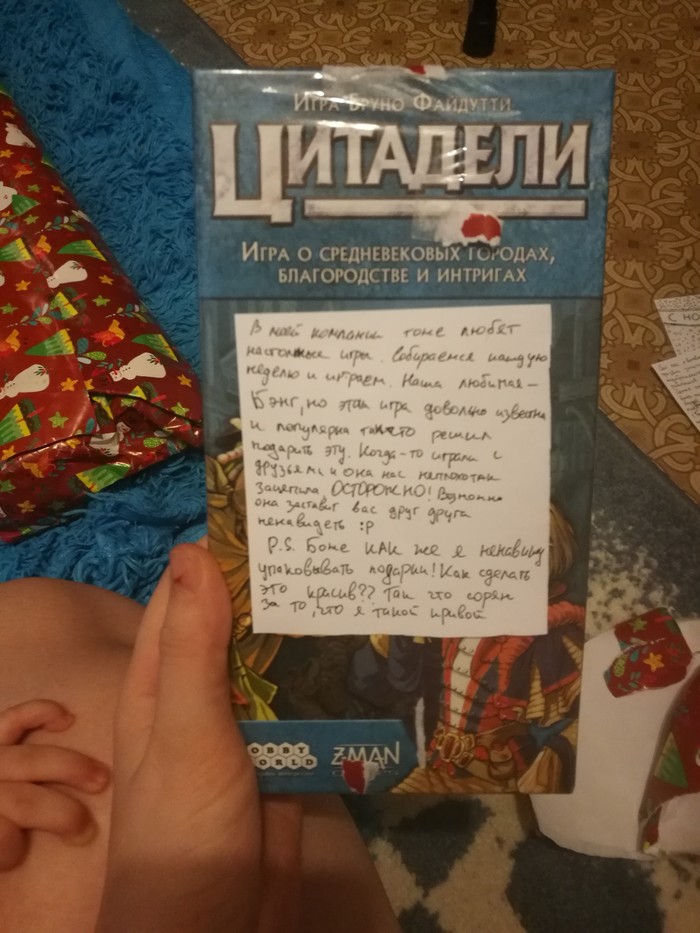 Игра Бруно Файдутти
Цитадели
Игра о средневековых городах,
благородстве и интригах
В моей компании тоже любят
настольные игры. Собираемся каждую
неделю и играем. Наша любимая –
Бэнг, но эта игра довольно известна
и популярна так что решил
подарить эту. Когда-то играли с
друзьями и она нас неплохо так
зацепила ОСТОРОЖНО! Возможно
она заставит вас друг друга
ненавидеть :р
P.S. Боже КАК же я ненавижу
упаковывать подарки! Как сделать
это красиво?? Так что сорян
за то, что я такой кривой
OBBY
ORLD
Z-MAN
С НО